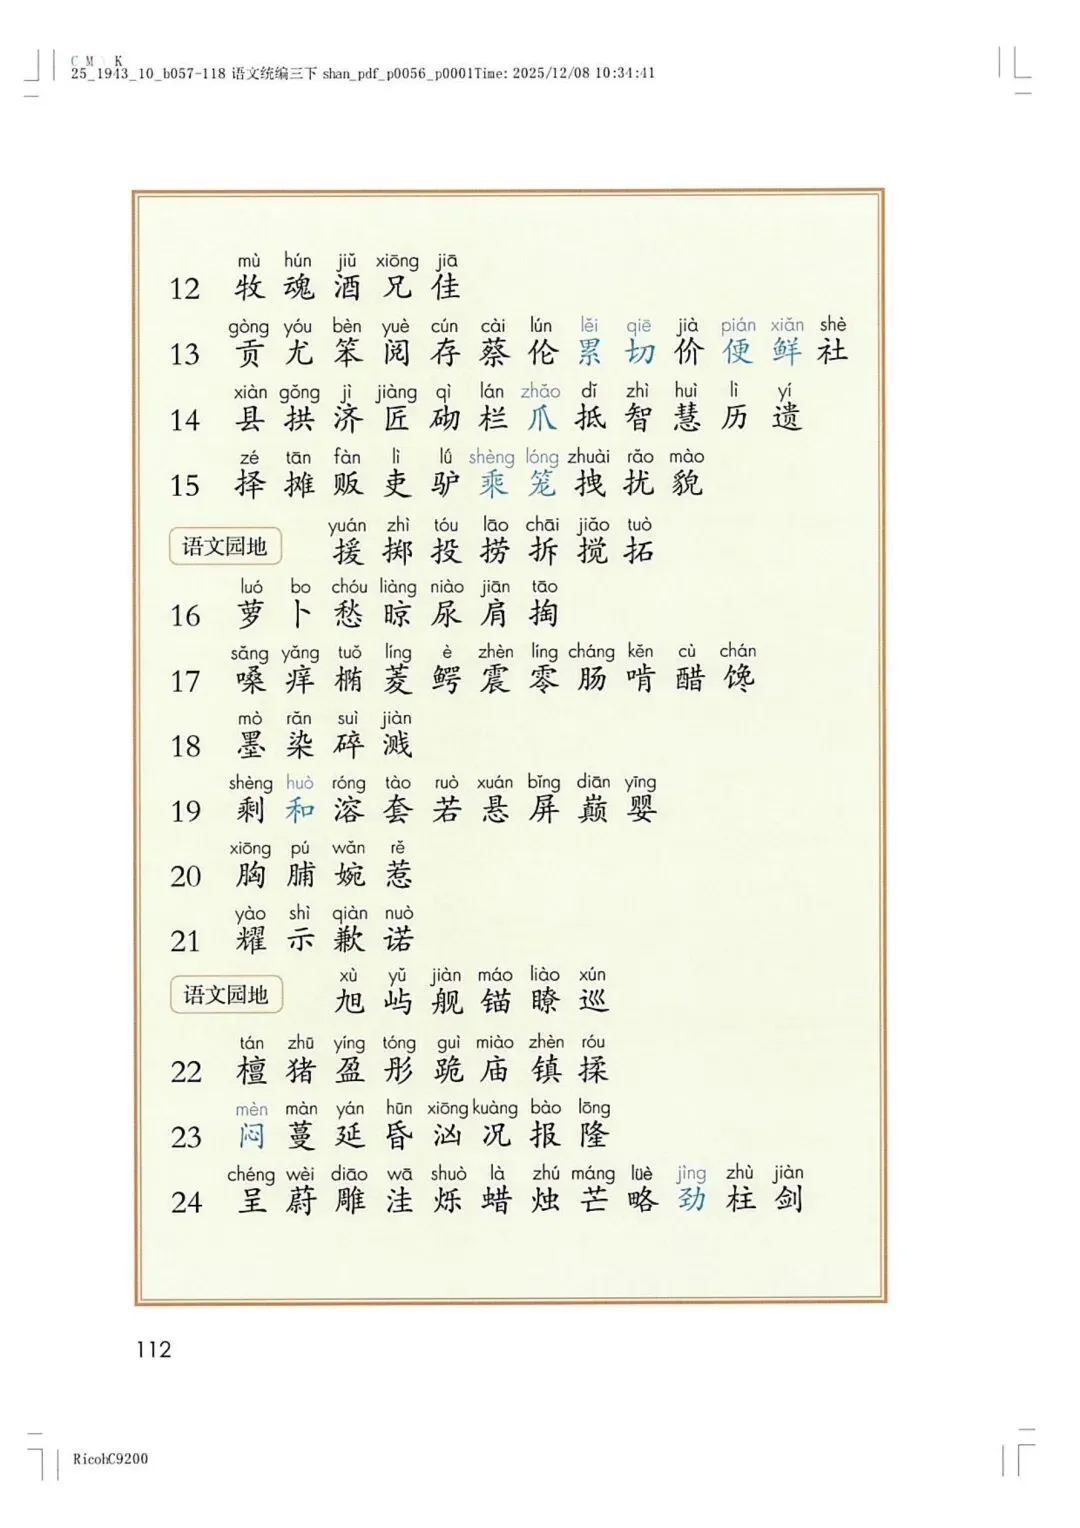 C M Y K
25_1943_10_b057-118 语文统编三下 shan_pdf_p0056_p0001Time: 2025/12/08 10:34:41
mù hún jiǔ xiōng jiā
12 牧 魂 酒 兄 佳
gòng yóu bèn yuè cún cài lún lěi qiē jià pián xiǎn shè
13 贡 尤 笨 阅 存 蔡 伦 累 切 价 便 鲜 社
xiàn gǒng jì jiàng qì lán zhǎo dǐ zhì huì lì yí
14 县 拱 济 匠 砌 栏 爪 抵 智 慧 历 遗
zé tān fàn lì lǘ shèng lóng zhuài rǎo mào
15 择 摊 贩 吏 驴 乘 笼 拽 扰 貌
yuán zhì tóu lāo chāi jiǎo tuò
语文园地 援 掷 投 捞 拆 搅 拓
luó bo chóu liàng niào jiān tāo
16 萝 卜 愁 晾 尿 肩 掏
sǎng yǎng tuǒ líng è zhèn líng cháng kěn cù chán
17 嗓 痒 椭 菱 鳄 震 零 肠 啃 醋 馋
mò rǎn suì jiàn
18 墨 染 碎 溅
shèng huò róng tào ruò xuán bǐng diān yīng
19 剩 和 溶 套 若 悬 屏 巅 婴
xiōng pú wǎn rě
20 胸 脯 婉 惹
yào shì qiàn nuò
21 耀 示 歉 诺
xù yǔ jiàn máo liào xún
语文园地 旭 屿 舰 锚 瞭 巡
tán zhū yíng tóng guì miào zhèn róu
22 檀 猪 盈 彤 跪 庙 镇 揉
mèn màn yán hūn xiōng kuàng bào lōng
23 闷 蔓 延 昏 汹 况 报 隆
chéng wèi diāo wā shuò là zhú máng lüè jìng zhù jiàn
24 呈 蔚 雕 洼 烁 蜡 烛 芒 略 劲 柱 剑
112
RicohC9200